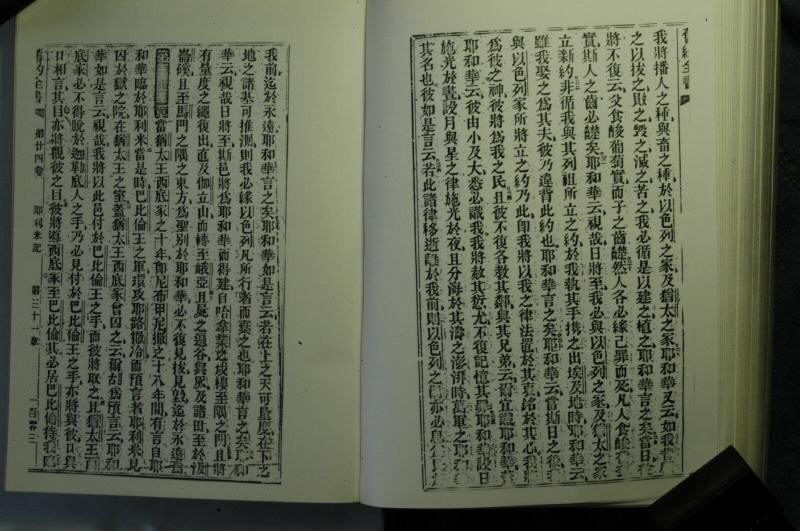 舊約全書
我將播人之種與畜之種於以色列之家及猶太之家耶和華又云如我
之以拔之敗之毀之滅之苦之我必循是以建之植之耶和華言之矣當日
將不復云父食酸葡萄實而子之齒齼然人各必緣己罪而死凡人食酸
實斯人之齒必齼矣耶和華云視哉日將至我必與以色列之家及猶太之家
立新約非循我與其列祖所立之約於我執其手攜之出埃及地時耶和華云
雖我娶之為其夫彼乃違背此約也耶和華言之矣耶和華云當斯日之後
與以色列家所將立之約乃此即我將以我之律法置於其衷銘於其心我將
為彼之神彼將為我之民且彼不復各教其鄰與其兄弟云爾宜識耶和華
耶和華云彼由小及大悉必識我我將赦其愆尤不復記憶其罪耶和華設日
施光於晝設月與星之律施光於夜且分海於其濤之澎湃時萬軍之耶和
其名也彼如是言云若此諸律移逝離於我前則以色列之
我前迄於永遠耶和華言之矣耶和華如是言云若在上之天可量度在下之
地之諸基可推測則我必緣以色列凡所行者而棄之也耶和華言之矣耶和
華云視哉日將至斯邑將為耶和華而得建自哈拿業之戍樓至隅之門且將
有量度之繩復出直及伽立山而轉至峨亞且屍之通谷與灰及諸田至於汲
崙磎且至馬門之隅之東方為聖別於耶和華必不復見拔見毀迄於永遠
當猶太王西底家之十年即尼布甲尼撒之十八年間有言自耶
和華臨於耶利米當是時巴比倫王之軍環攻耶路撒冷而預言者耶利米見
囚於獄之院在猶太王之室蓋猶太王西底家曾囚之云爾胡為預言云耶和
華如是言云視哉我將以此邑付於巴比倫王之手而彼將取之且猶太王西
底家必不得脫於迦勒底人之手乃必見付於巴比倫王之手亦將與彼口與
口相言其目亦將觀彼之目彼將導西底家至巴比倫其必居巴比倫待我
舊約全書 第廿四卷 耶利米記 第三十一章 一百零三